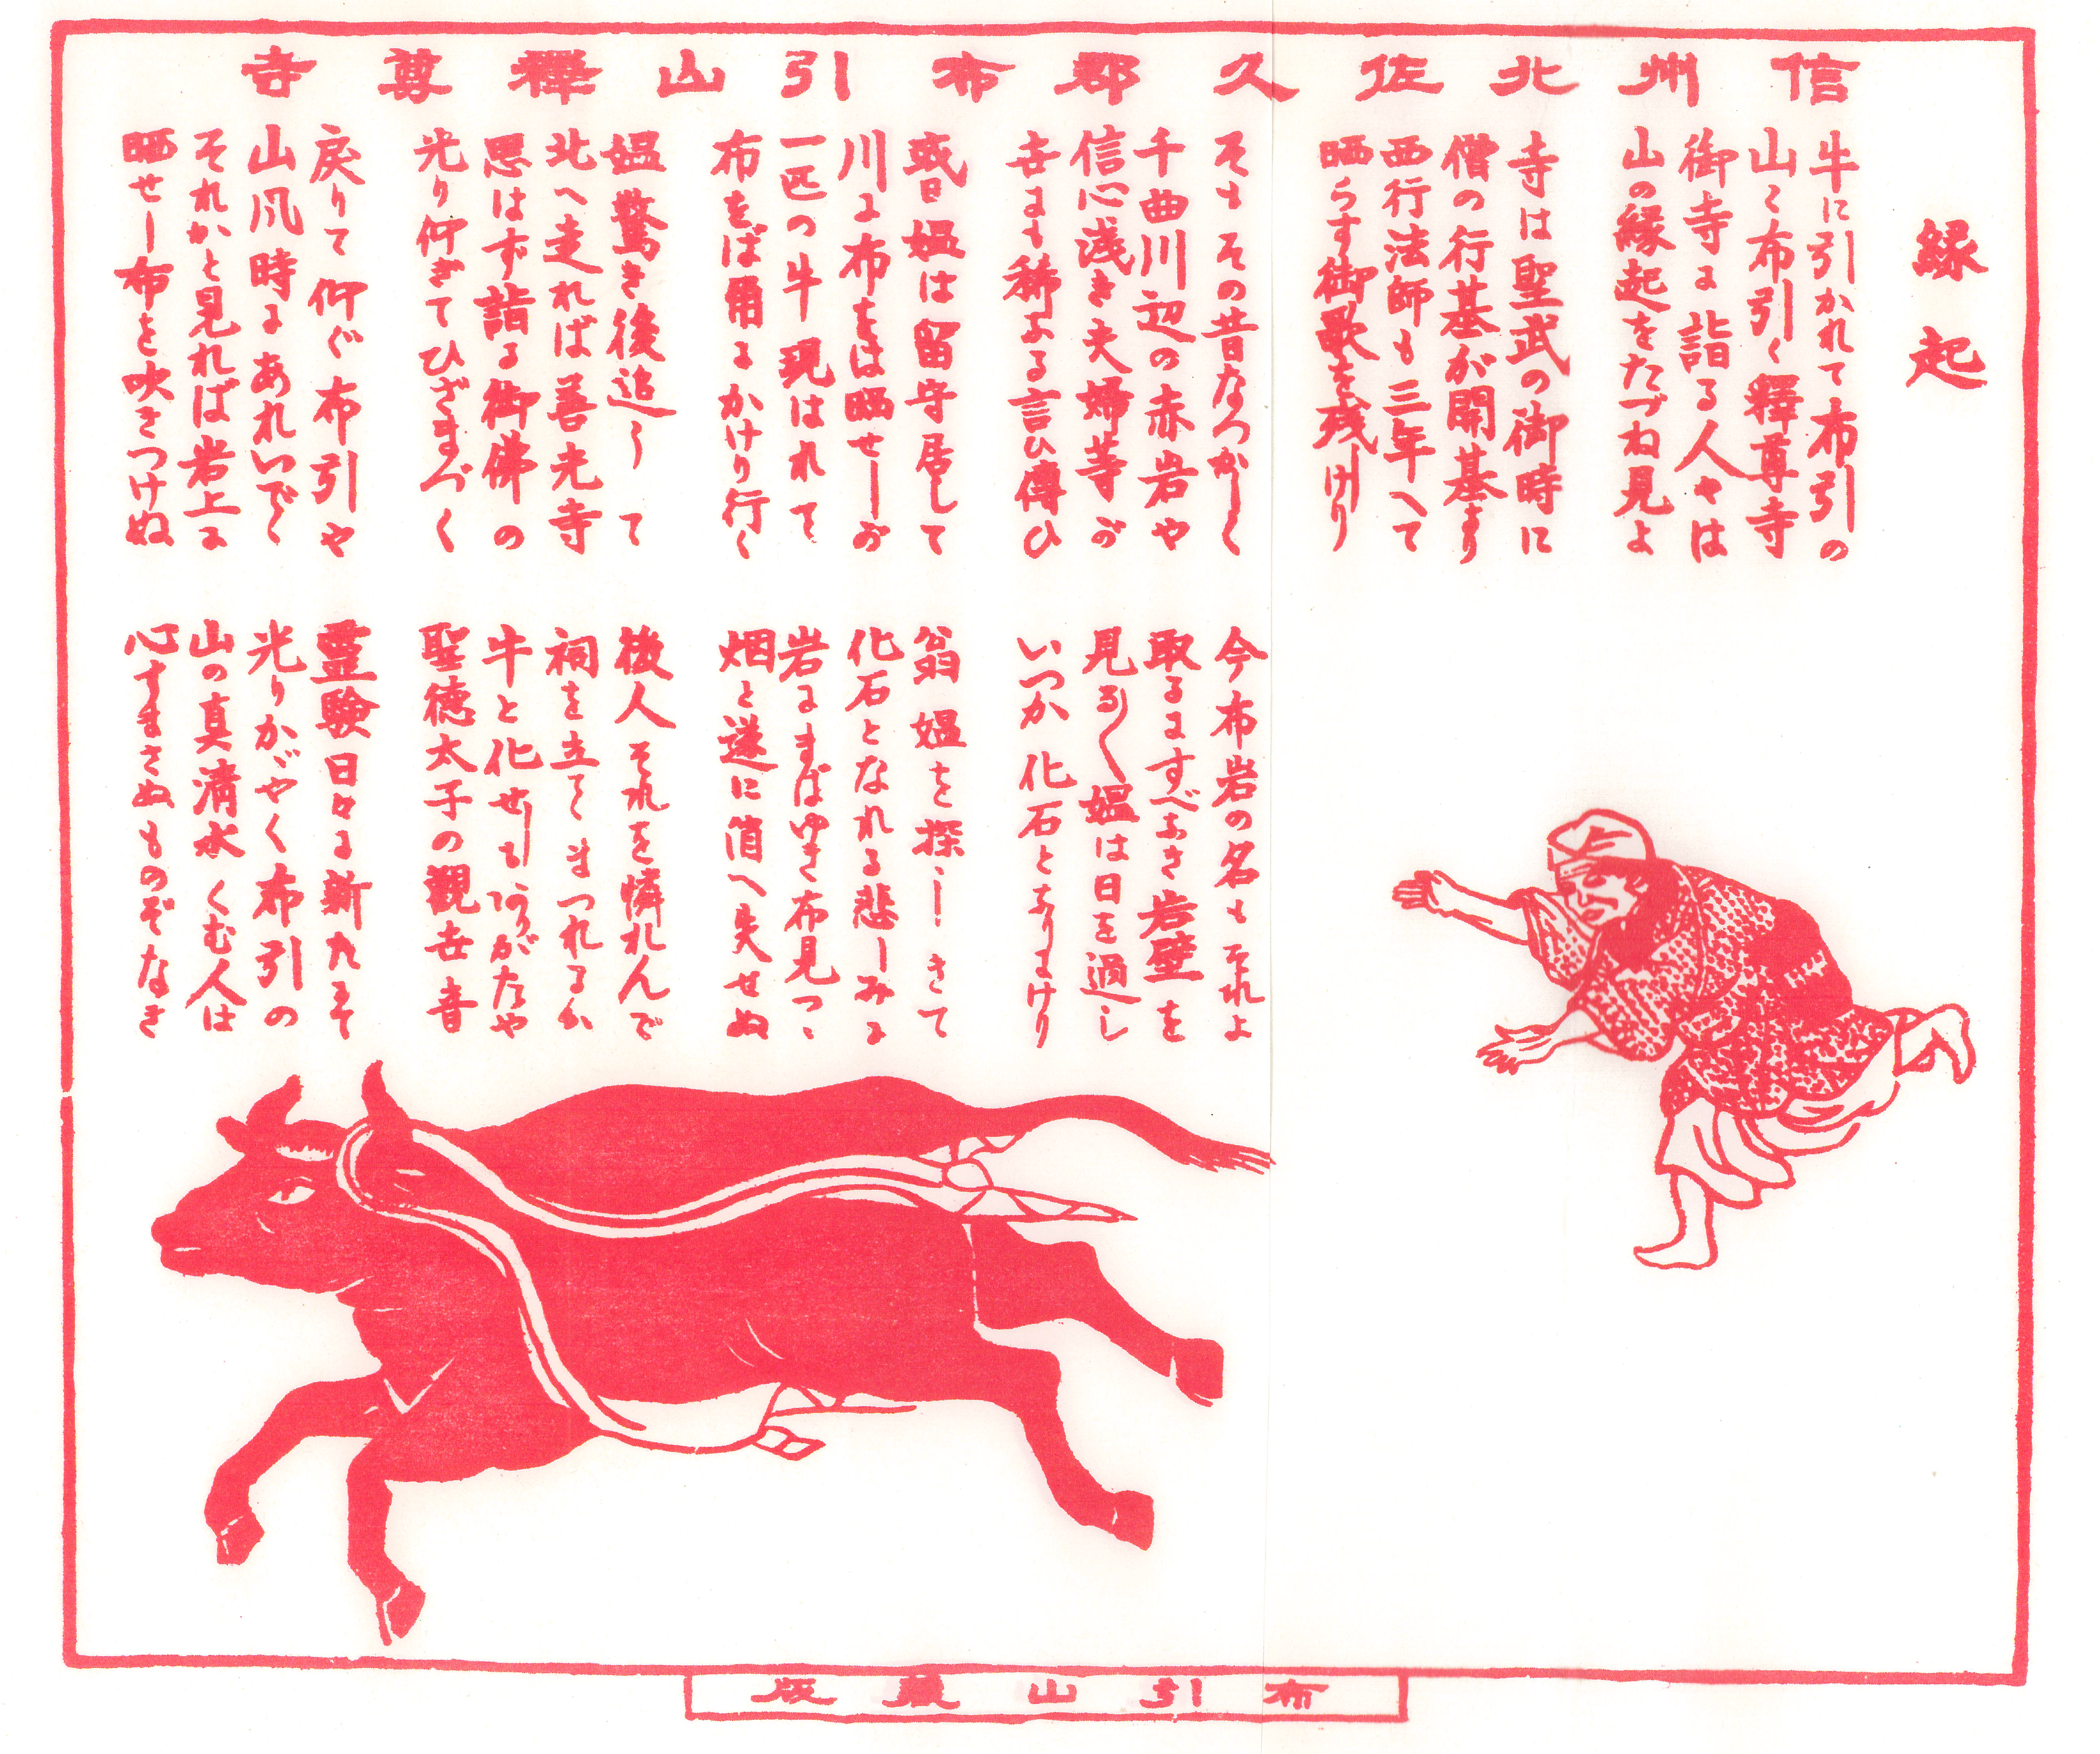 信州北佐久郡布引山釋尊寺
縁起
牛に引かれて布引の
山く布引く釋尊寺
御寺に詣る人々は
山の縁起をたづね見よ
寺は聖武の御時に
僧の行基が開基あり
西行法師も三年へて
晒らす御歌を残しけり
そもその昔なつかしく
千曲川辺の赤岩や
信心浅き夫婦等が
世にも稀なる言ひ傳ひ
或日媼は留守居して
川に布をは晒せしが
一匹の牛現はれて
布をば角にかけり行く
媼驚き後追うて
北へ走れば善光寺
思はず詣る御佛の
光り仰ぎてひざまづく
戻りて仰ぐ布引や
山風時にあれいでゝ
それかと見れば岩上に
晒せし布を吹きつけぬ
今布岩の名もそれよ
取るにすべなき岩壁を
見る〱媼は日を過し
いつか化石となりにけり
翁媼を探しきて
化石となれる悲しみに
岩にまばゆき布見つゝ
烟と遂に消へ失せぬ
後人それを憐れんで
祠を立てゝまつれるか
牛と化せしもありがたや
聖徳太子の観世音
霊験日々に新たにそ
光りかゞやく布引の
山の真清水くむ人は
心すまさぬものぞなき
布引山蔵版